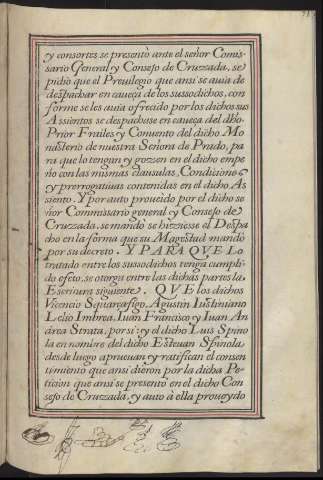 y consortes se presentò ante el señor Comis-
sario General y Consejo de Cruzzada, se
pidiò que el Preuilegio que ansi se auia de
despachar en caueça de los sussodichos, con
forme se les auia ofrecido por los dichos sus
Assientos se despachase en caueça del dho
Prior Frailes y Conuento del dicho Mo
nasterio de nuestra Señora de Prado, pa
ra que lo tengan y gozen en el dicho empe
ño con las mismas clausulas, Condiciones
y prerrogatiuas contenidas en el dicho As
siento. Y por auto proueido por el dicho se
ñor Commissario general y Consejo de
Cruzzada, se mando se hizziesse el Despa
cho en la forma que su Magestad mandò
por su decreto. Y PARA QVE Lo
tratado entre los sussodichos tenga cumpli-
do efeto, se otorga entre las dichas partes la
Escritura siguiente. QVE los dichos
Vicencio Squarçafigo, Agustin Iustiniano
Lelio Imbrea, Iuan Francisco y Iuan An
drea Strata, por si; y el dicho Luis Spino
la en nombre del dicho Esteuan Spinola,
desde luego aprueuan y ratifican el consen
timiento que ansi dieron por la dicha Pe-
ticion que ansi se presentò en el dicho Con
sejo de Cruzada, y auto à ella proueydo